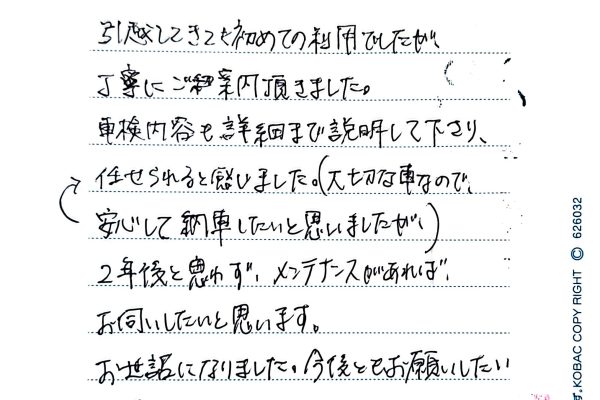 引越してきて初めての利用でしたが、
丁寧にご案内頂きました。
車検内容も詳細まで説明して下さり、
任せられると感じました。(大切な車なので、
安心して納車したいと思いましたが、)
2年後と思わず、メンテナンスがあれば、
お伺いしたいと思います。
お世話になりました。今後ともお願いしたい
す.KOBAC COPY RIGHT © 626032